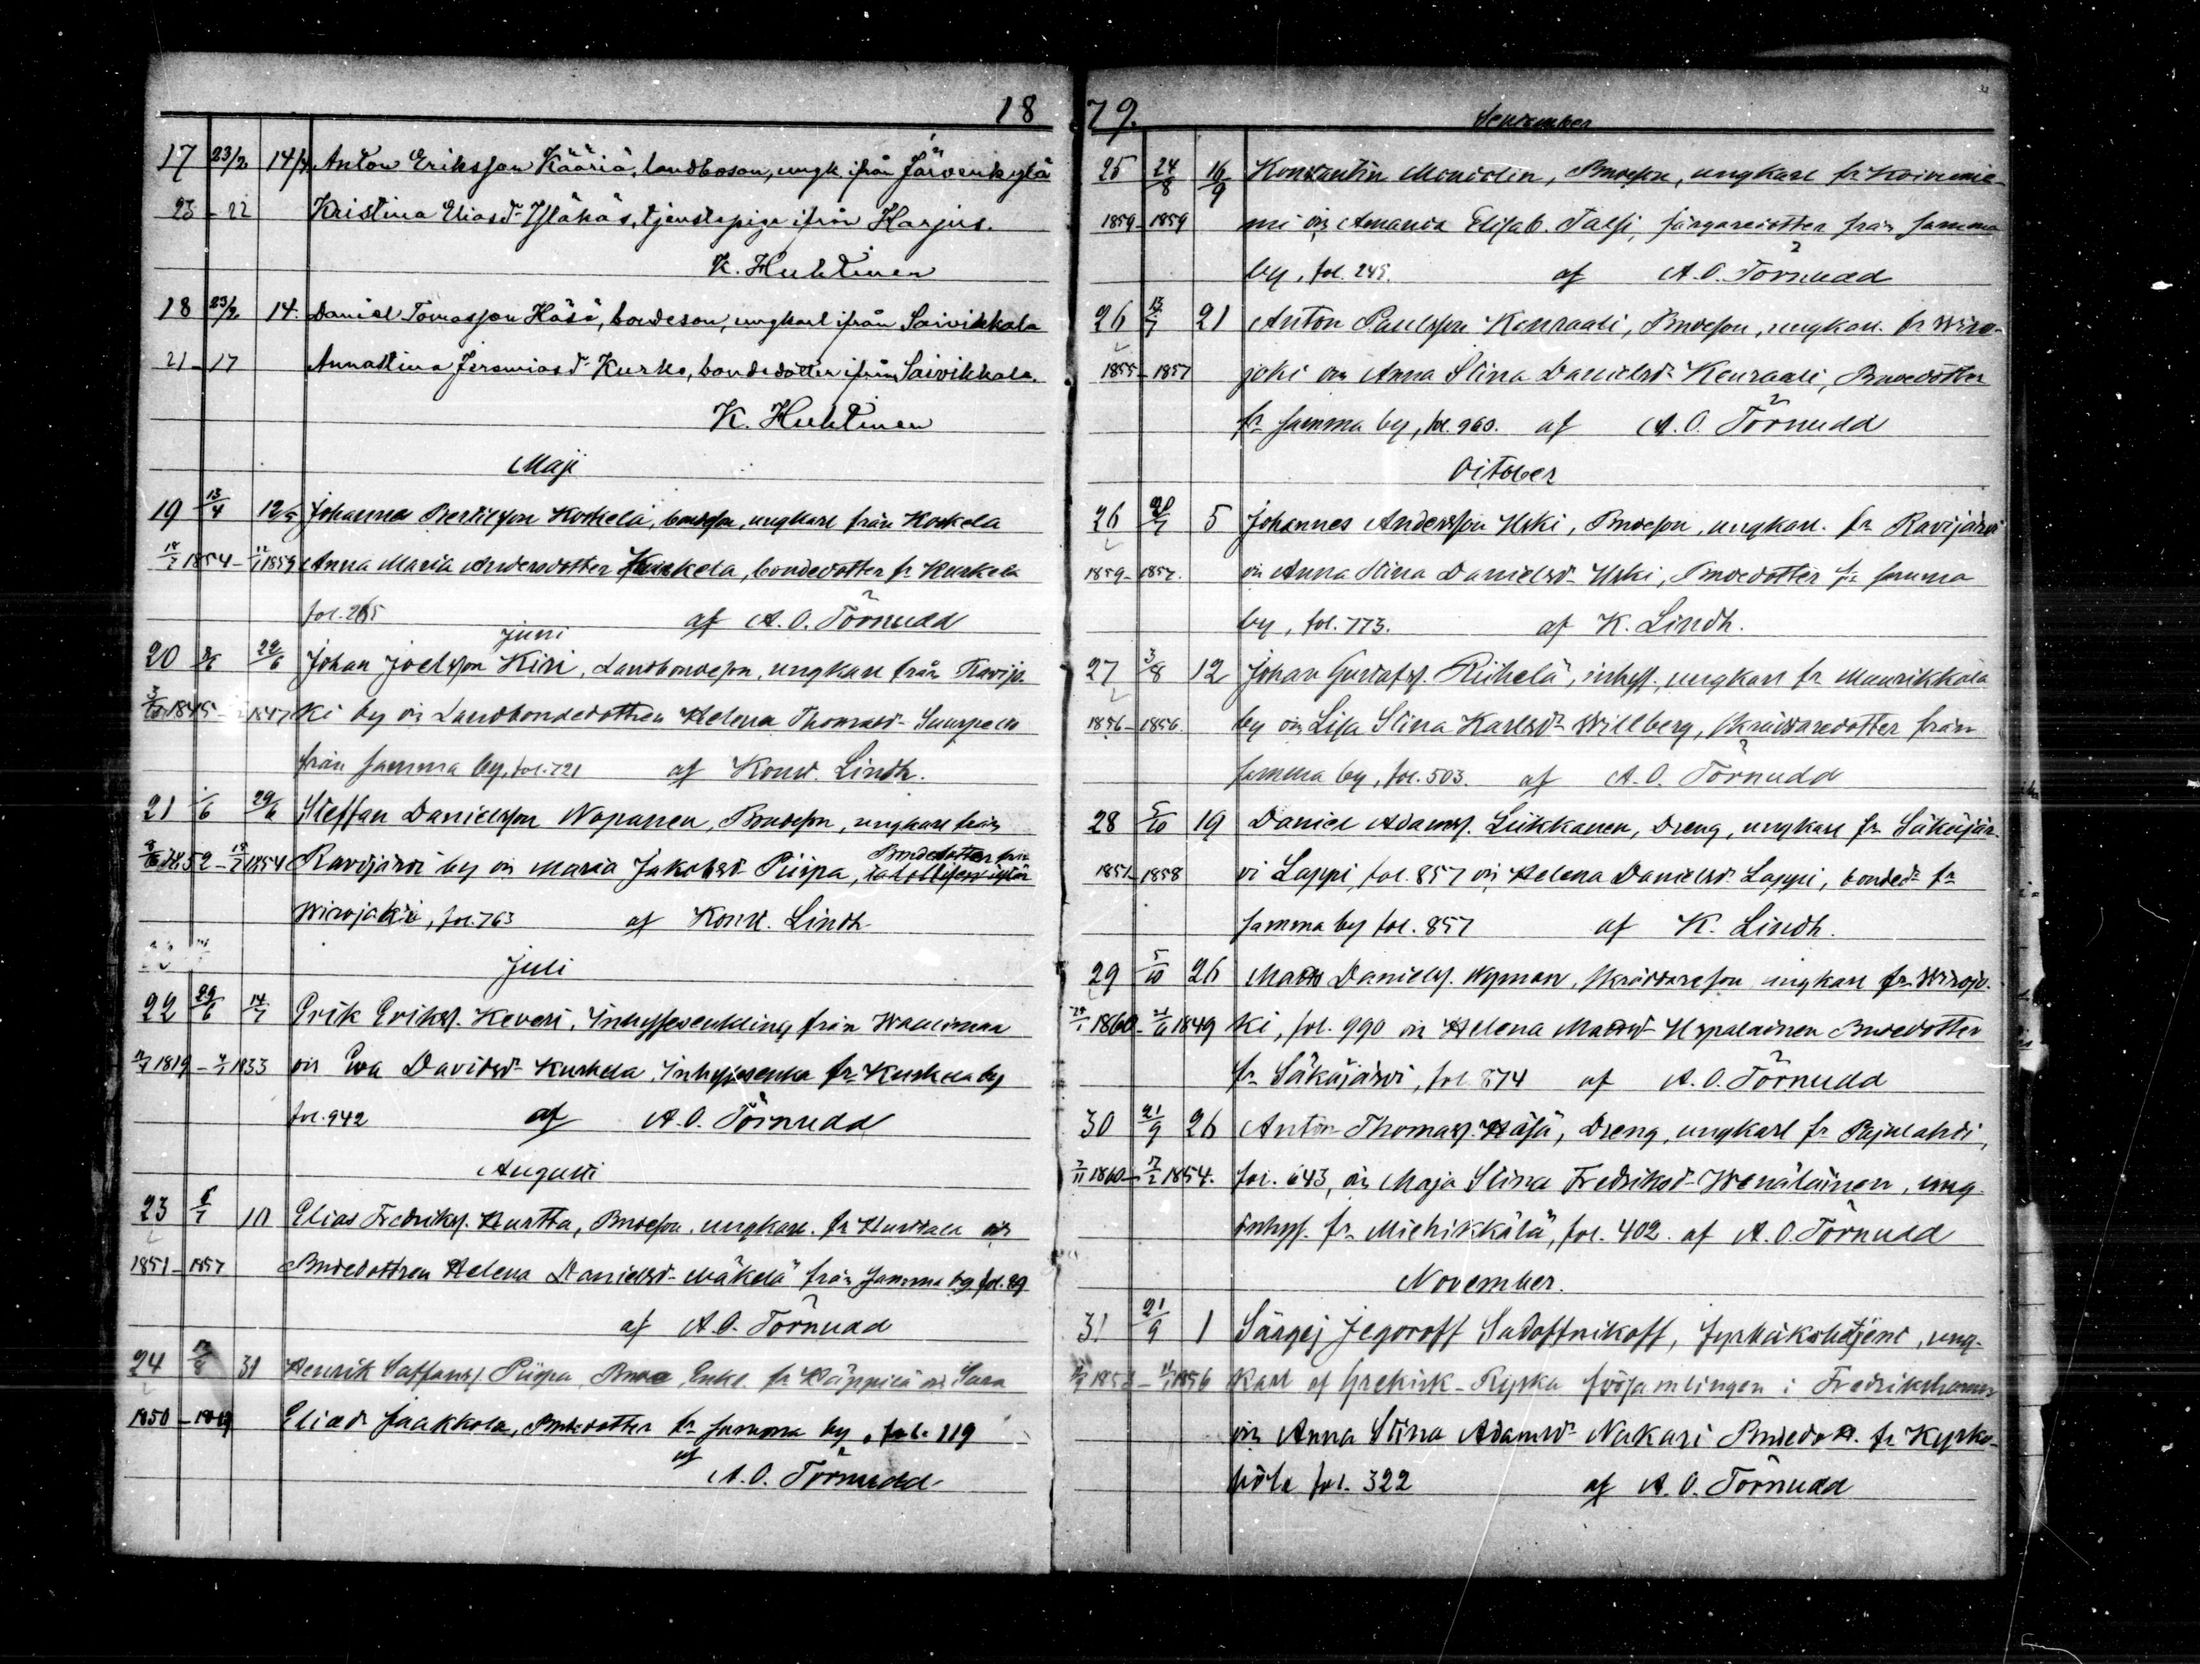 18
17 23/2 14/4 Anton Eriksson Kääriä, landboson, ungk. ifrån Järvenkylä
23 - 22 Kristina Eliasdr Yläkäs, tjenstepiga ifrån Harjus.
K. Huhtinen
18 23/2 14. Daniel Tomasson Häsä, bondeson, ungkarl ifrån Saivikkala
21 - 17 Annastina Jeremiasdr Kurko, bondedotter ifrån Saivikkala.
K. Huhtinen
Maji
19 13/4 12/5 Johannes Bertilsson Koskela, bondeson, ungkarl från Koskela
1854 - 1859 Anna Maria Andersdotter Kurkela, bondedotter fr Kurkela
fol. 265 af A. O. Törnudd
Juni
20 22/6 Johan Joelsson Kiri, Landbondeson, ungkarl från Ravijo-
1845 - 1847 ki by o Landbondedottren Helena Thomasdr
från samma by, fol. 721 af Konr. Lindh.
21 /6 29/6 Steffan Danielsson Nopanen, Bondeson, ungkarl från
1852 - 1854 Ravijärvi by o Maria Jakobsdr Piispa, Bondedotter från
Wirojoki, fol. 763 af Konr. Lindh
Juli
22 29/6 14/7 Erik Eriks. Keveri, Inhysesenkling från
1819 - 1833 o Eva Davidsdr Kurkela, Inhysesenka fr Kurkela by
fol. 942 af A. O. Törnudd
Augusti
23 10 Elias Fredriks. Hurtta, Bondeson, ungkarl. fr Hurttala o
1851 - 1857 Bondedottren Helena Danielsdr Mäkelä från samma by, fol. 89
af A. O. Törnudd
24 31 Henrik Staffans. Piispa, Bonde Enkl. fr Häppilä o Sara
1850 - Eliasdr Jaakkola, Bondedotter fr samma by, fol. 119
af A. O. Törnudd
79.
September
25 24/8 16/9 Konstantin Mondolin, Bondeson, ungkarl fr Koivunie-
1859 - 1859 mi o Amanda Elisab. Talsi, färgaredotter från samma
by, fol. 249. af A. O. Törnudd
26 13/7 21 Anton Paulsson Kenraali, Bondeson, ungkarl. fr Wiro-
1855 - 1857 joki o Anna Stina Danielsdr Kenraali, Bondedotter
fr samma by, fol. 960. af A. O. Törnudd
October
26 5 Johannes Andersson Uski, Bondeson, ungkarl. fr Ravijärvi
1859 - 1857. o Anna Stina Danielsdr Uski, Bondedotter fr samma
by, fol. 773. af K. Lindh.
27 3/8 12 Johan Gustafs. Riihelä, inhys., ungkarl fr Muurikkala
1856 - 1856. by o Lisa Stina Karlsdr Willberg, Skräddaredotter från
samma by, fol. 503. af A. O. Törnudd
28 5/10 19 Daniel Adams. Liikkanen, Dreng, ungkarl fr Säkäjär-
1851 - 1858 vi Lappi, fol. 857 o Helena Danielsdr Lappi, bondedr fr
samma by fol. 857 af K. Lindh.
29 5/10 26 Matts Daniels. Nyman, Skräddareson ungkarl fr Wirojo-
1860 - 1849 ki, fol. 990 o Helena Mattsdr Uspalainen Bondedotter
fr Säkäjärvi, fol. 874 af A. O. Törnudd
30 21/9 26 Anton Thomas. Häsä, Dreng, ungkarl fr Pajulahti,
1860 - 1854. fol. 643, o Maja Stina Fredriksdr Wenäläinen, ung.
inhys. fr Miehikkälä, fol. 402. af A. O. Törnudd
November.
31 21/9 1 Särgej Jegoroff Sadoffnikoff, ung-
1853 - 1856 karl af Grekisk-Ryska församlingen i Fredrikshamn
o Anna Stina Adamsdr Nakari Bondedott. fr Kyrko-
fol. 322 af A. O. Törnudd